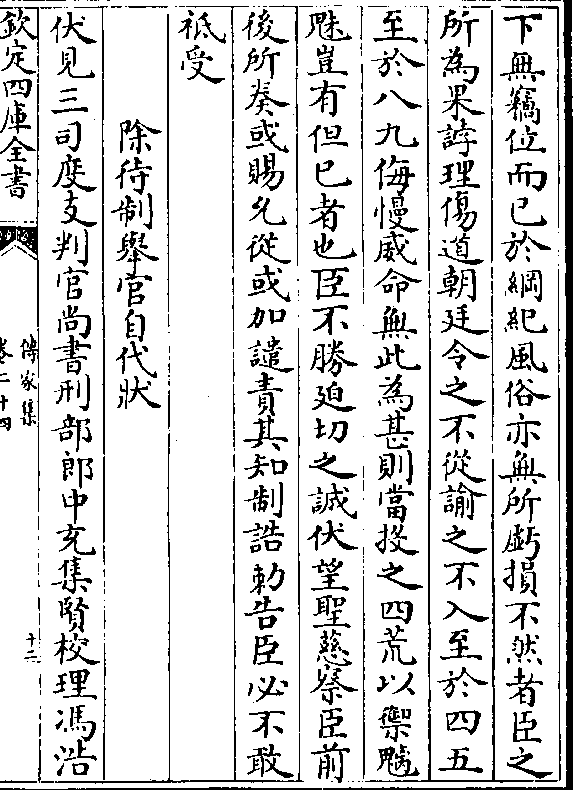 下無竊位而已於綱紀風俗亦無所虧損不然者臣之
所為果誖理傷道朝廷令之不從諭之不入至於四五
至於八九侮慢威命無此為甚則當投之四荒以禦魑
魅豈有但已者也臣不勝廹切之誠伏望聖慈察臣前
後所奏或賜允從或加譴責其知制誥勅告臣必不敢
祗受
除待制舉官自代狀
伏見三司度支判官尚書刑部郎中充集賢校理馮浩
欽定四庫全書
傳家集
卷二十四
十二